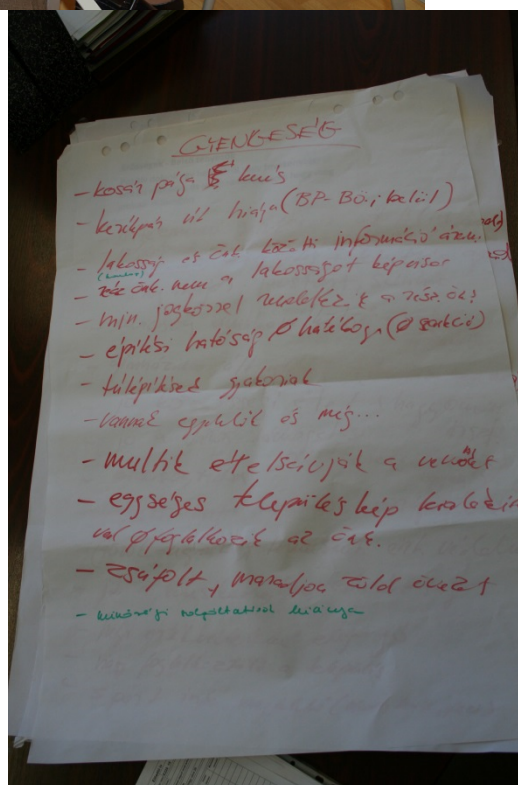 GYENGESÉG
- kosár pálya kevés
- kerékpár út hiánya (BP-Bö.; belül)
- lakosság és önk. közötti információ áram.
- rész önk. nem a lakosságot képvisel
- min. jogkörrel rendelkezik a rész. ök.
- építési hatóság Ø hatékony (Ø szankció)
- túlépítések gyakoriak
- vannak egyebek és még...
- multik elszívják a vevőket
- egységes településkép
Ø foglalkozik az önk.
- zsúfolt, maradjon zöld övezet
- minőségi szolgáltatások hiánya